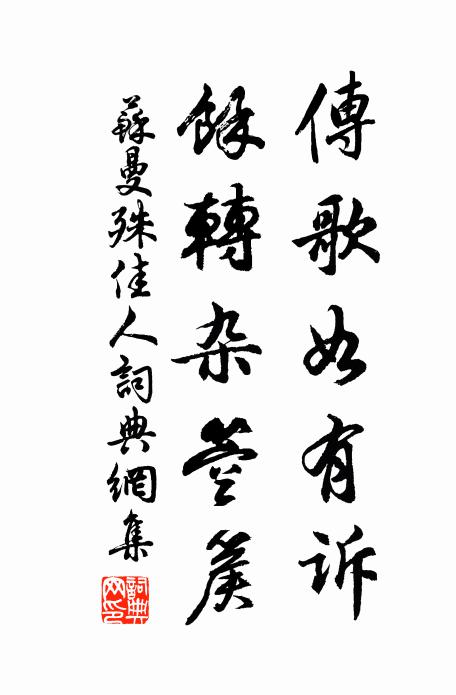 傳歌如有訴
餘轉杂箜篌
蘇曼殊佳人詞典網集
詞典网印